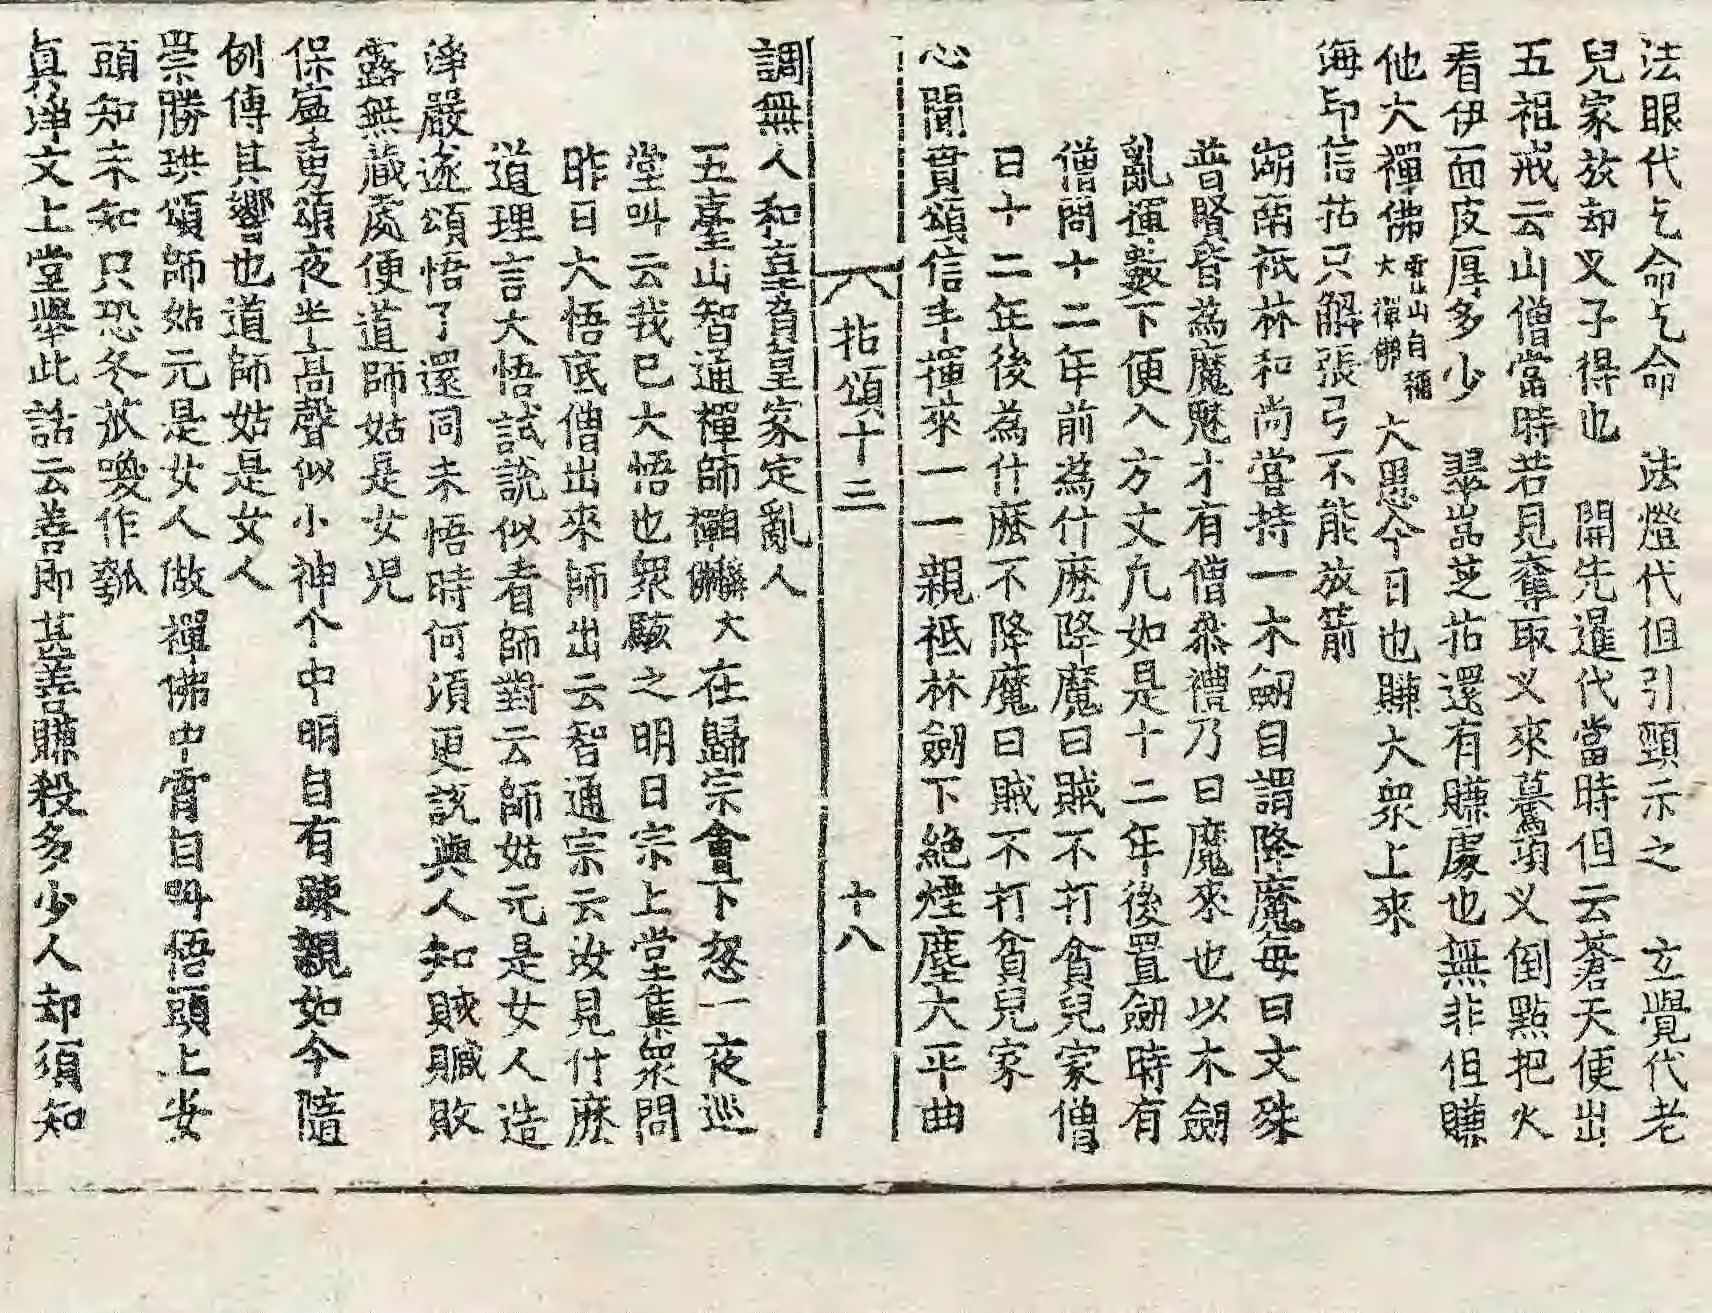 法眼代乞命乞命　法燈代但引頸示之　玄覺代老
兒家放却叉子得也　開先暹代當時但云蒼天便出
五祖戒云山僧當時若見奪取义來驀項义倒點把火
看伊面皮厚多少　翠嵓芝拈還有賺處也無非但賺
他大禪佛霍山自稱大禪佛　大愚今日也賺大衆上來
海印信拈只解張弓不能放箭
湖南祇林和尚嘗持一木劒自謂降魔每曰文殊
普賢皆為魔魅才有僧叅禮乃曰魔來也以木劒
亂揮數下便入方丈凢如是十二年後置劒時有
僧問十二年前為什麽降魔曰賊不打貧兒家僧
曰十二年後為什麽不降魔曰賊不打貧兒家
心聞賁頌信手揮來一一親祇林劒下絶煙塵大平曲
拈頌十三　十八
調無人和直育皇家定亂人
五臺山智通禪師自稱大禪佛在歸宗會下忽一夜巡
堂叫云我已大悟也衆駭之明日宗上堂集衆問
昨日大悟底僧出來師出云智通宗云汝見什麽
道理言大悟試說似看師對云師姑元是女人造
淨嚴遂頌悟了還同未悟時何須更說與人知賊贓敗
露無藏處便道師姑是女兒
保寧勇頌夜半高聲似小神个中明自有踈親如今隨
例傳其響也道師姑是女人
崇勝珙頌師姑元是女人做禪佛中霄自叫悟頭上安
頭知未知只恐冬苽喚作瓠
真淨文上堂舉此話云善即甚善賺殺多少人却須知